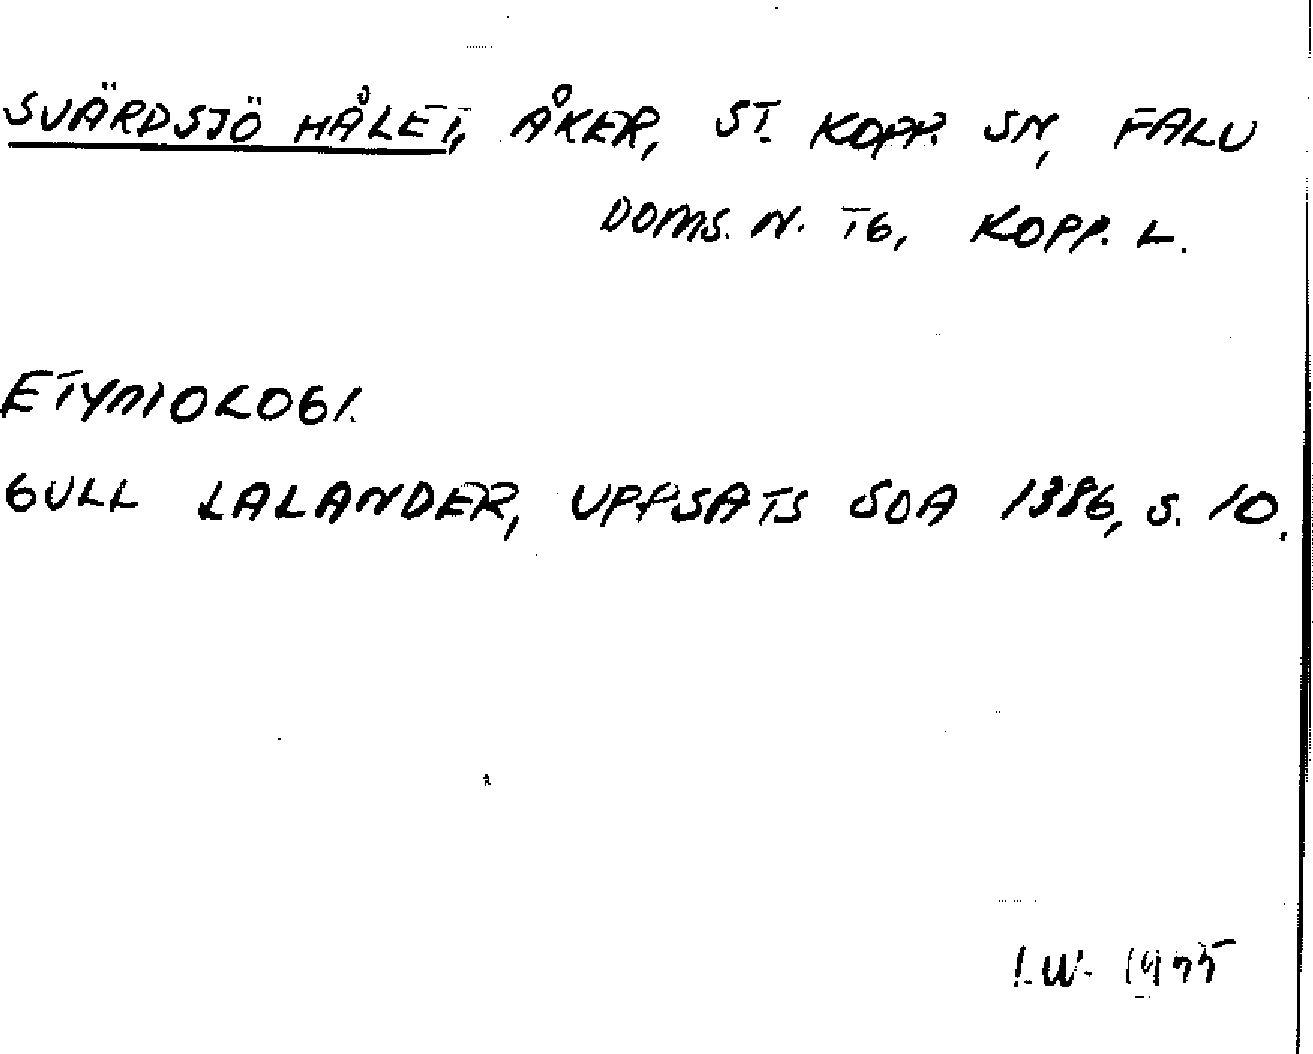 SVÄRDSJÖ HÅLET, ÅKER, ST. KOPP. SN, FALU
DOMS. N. TG, KOPP. L.
ETYMOLOGI.
GULL LALANDER, UPPSATS SOA 1386, S. 10.
I.W. 1975